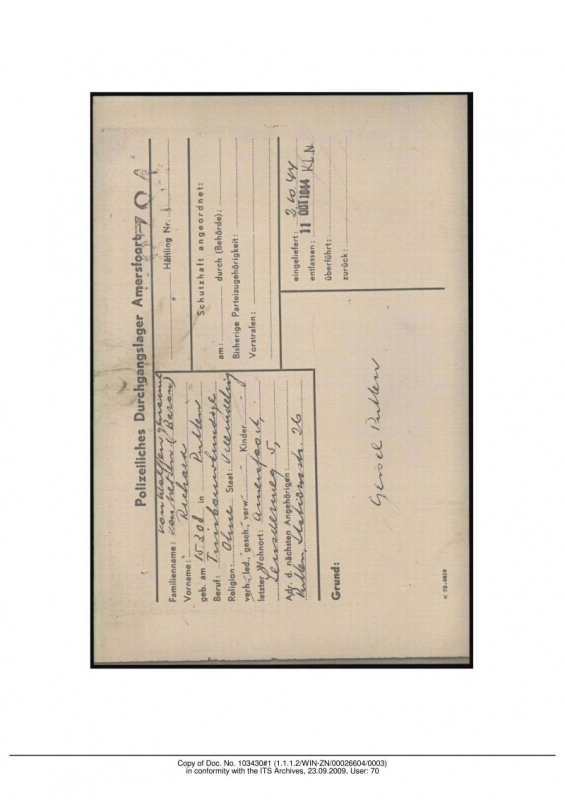 Polizeiliches Durchgangslager Amersfoort
Familienname:
Vorname: Richard
geb. am 15.3.08 in Putten
Beruf: Tuinbouwkundige
Religion: Ohne Staat:
verh., led., gesch., verw. Kinder
letzter Wohnort: Amersfoort,
Leusderweg 5,
Adr. d. nächsten Angehörigen:
Putten, Stationsstr. 26
Häftling Nr.
Schutzhaft angeordnet:
am: durch (Behörde):
Bisherige Parteizugehörigkeit:
Vorstrafen:
eingeliefert: 2.10.44
entlassen: 11 OKT 1944 K.L.N.
überführt:
zurück:
Grund:
Geisel Putten
Copy of Doc. No. 103430#1 (1.1.1.2/WIN-ZN/00026604/0003)
in conformity with the ITS Archives, 23.09.2009, User: 70